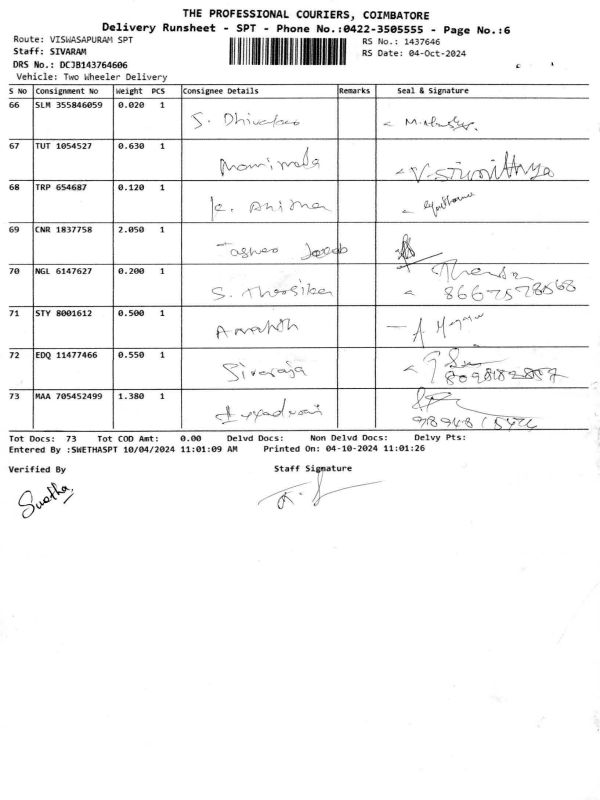 THE PROFESSIONAL COURIERS, COIMBATORE
Delivery Runsheet - SPT - Phone No.:0422-3505555 - Page No.:6
Route: VISWASAPURAM SPT
RS No.: 1437646
Staff: SIVARAM
RS Date: 04-Oct-2024
DRS No.: DCJB143764606
Vehicle: Two Wheeler Delivery
S No Consignment No Weight PCS Consignee Details Remarks Seal & Signature
66 SLM 355846059 0.020 1
S.
67 TUT 1054527 0.630 1
68 TRP 654687 0.120 1
69 CNR 1837758 2.050 1
70 NGL 6147627 0.200 1
S. Thoosika
71 STY 8001612 0.500 1
72 EDQ 11477466 0.550 1
Sivaraja
73 MAA 705452499 1.380 1
Tot Docs: 73 Tot COD Amt: 0.00 Delvd Docs: Non Delvd Docs: Delvy Pts:
Entered By :SWETHASPT 10/04/2024 11:01:09 AM Printed On: 04-10-2024 11:01:26
Verified By Staff Signature
Swetha